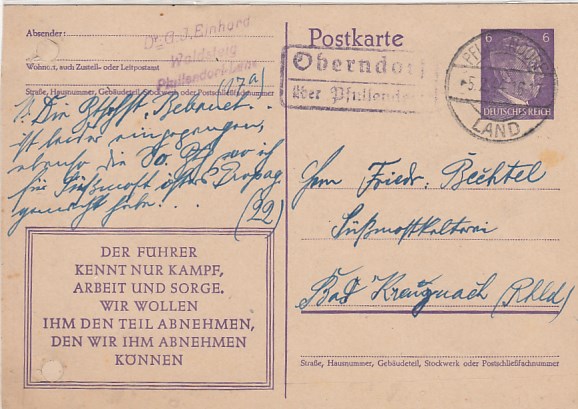 Absender:
Dr. G. J. Einhard
Waldsteig
Pfullendorf-Land
Wohnort, auch Zustell- oder Leitpostamt
Straße, Hausnummer, Gebäudeteil, Stockwerk oder Postschließfachnummer
(17a)
1. Die
ist leider eingegangen,
ebenso die wo ich
für Süßmost öfters Propag.
gemacht habe.
(22)
DER FÜHRER
KENNT NUR KAMPF,
ARBEIT UND SORGE.
WIR WOLLEN
IHM DEN TEIL ABNEHMEN,
DEN WIR IHM ABNEHMEN
KÖNNEN
Postkarte
Oberndorf
über Pfullendorf
LAND
6 6
DEUTSCHES REICH
Herrn Friedr. Bechtel
Süßmostkelterei
Bad Kreuznach (Rhld)
Straße, Hausnummer, Gebäudeteil, Stockwerk oder Postschließfachnummer